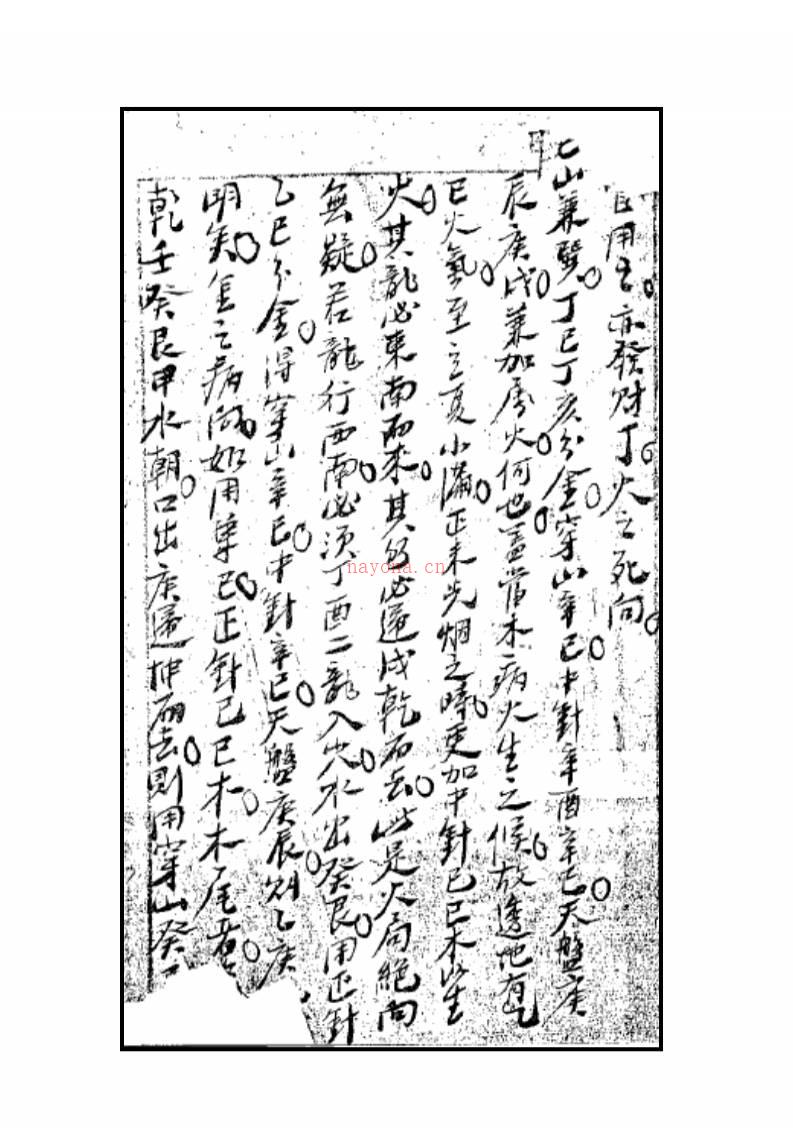 用之亦發財丁火之死向
巳山兼巽丁巳丁亥分金穿山辛巳中針辛酉辛巳天盤庚
辰庚戌兼加房火何也蓋當木病火生之候故透地有乙
巳火氣至立夏小滿正未光烟之時更加中針己巳木以生
火其龍必東南而來其水必還戌乾而去此是火局絕向
無疑若龍行西南必須丁酉二龍入穴水出癸艮用正針
乙巳分金得穿山辛巳中針辛巳天盤庚辰則乙庚
明矣金之病向如用穿己巳正針己巳木木尾
乾壬癸艮甲水朝口出庚還坤而去則用穿山癸
nayona.cn